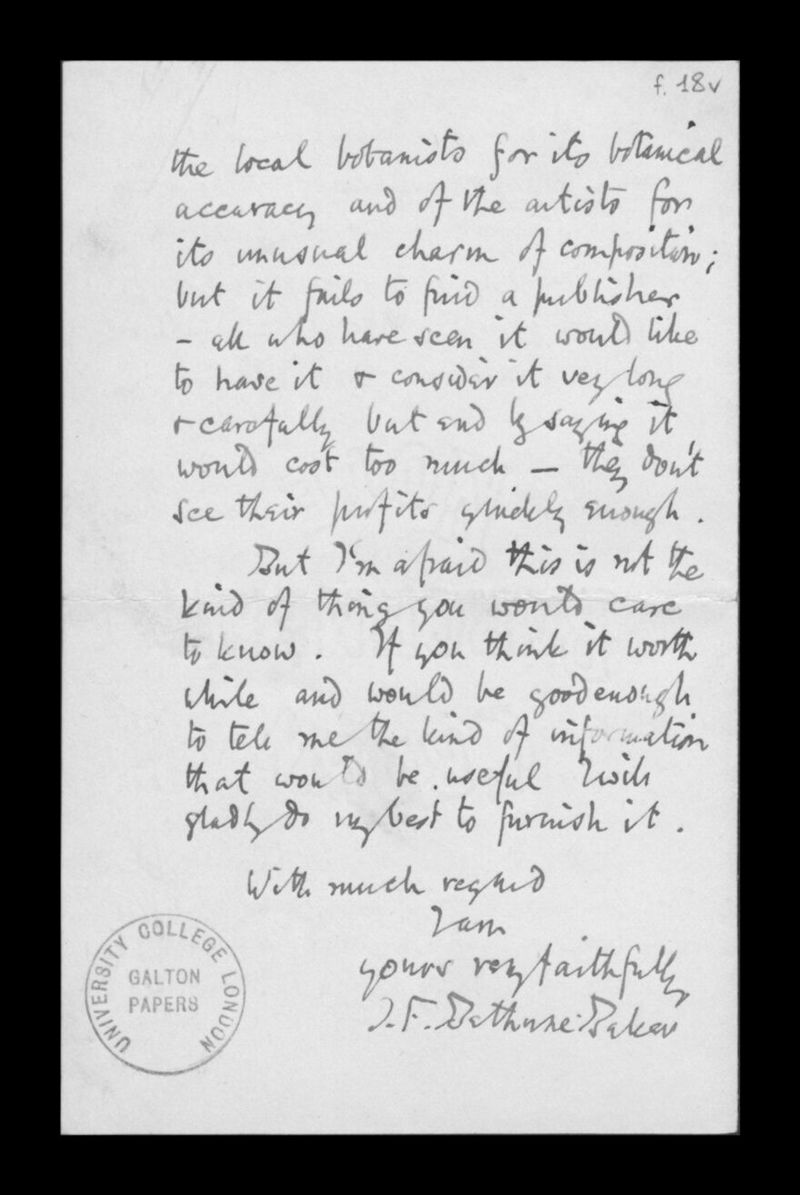 f. 18v
the local botanists for its botanical
accuracy and of the artists for
its unusual charm of composition;
but it fails to find a publisher
– all who have seen it would like
to have it & consider it very long
& carefully but end by saying it
would cost too much — they don't
see their profits quickly enough.
But I'm afraid this is not the
kind of thing you would care
to know. If you think it worth
while and would be good enough
to tell me the kind of information
that would be useful I will
gladly do my best to furnish it.
With much regard
I am
yours very faithfully
J. F. Bethune-Baker
UNIVERSITY COLLEGE LONDON
GALTON
PAPERS